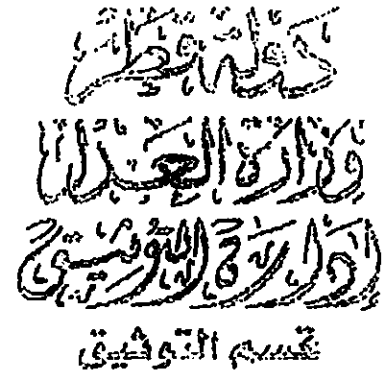 دولة قطر
وزارة العدل
ادارة التوثيق
قسم التوثيق